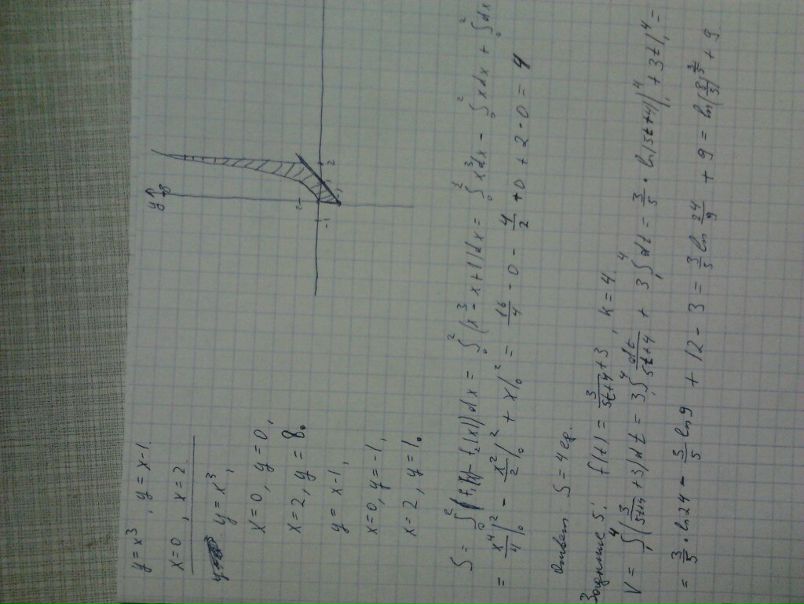 y = x³, y = x-1
x = 0, x = 2
y = x³,
x = 0, y = 0,
x = 2, y = 8.
y = x-1,
x = 0, y = -1,
x = 2, y = 1.
y
8
1
2
-1
S = ∫₀² (f₁(x) - f₂(x)) dx = ∫₀² (x³ - x + 1) dx = ∫₀² x³dx - ∫₀² xdx + ∫₀² dx
= x⁴/4 |₀² - x²/2 |₀² + x |₀² = 16/4 - 0 - 4/2 + 0 + 2 - 0 = 4
Ответ S = 4 ед.
Задание 5: f(t) = 3/(5t+4) + 3, k = 4.
V = ∫₁⁴ (3/(5t+4) + 3) dt = 3 ∫₁⁴ dt/(5t+4) + 3 ∫₁⁴ dt = 3/5 · ln(5t+4) |₁⁴ + 3t |₁⁴ =
= 3/5 · ln24 - 3/5 ln9 + 12 - 3 = 3/5 ln 24/9 + 9 = ln(8/3)^(3/5) + 9.